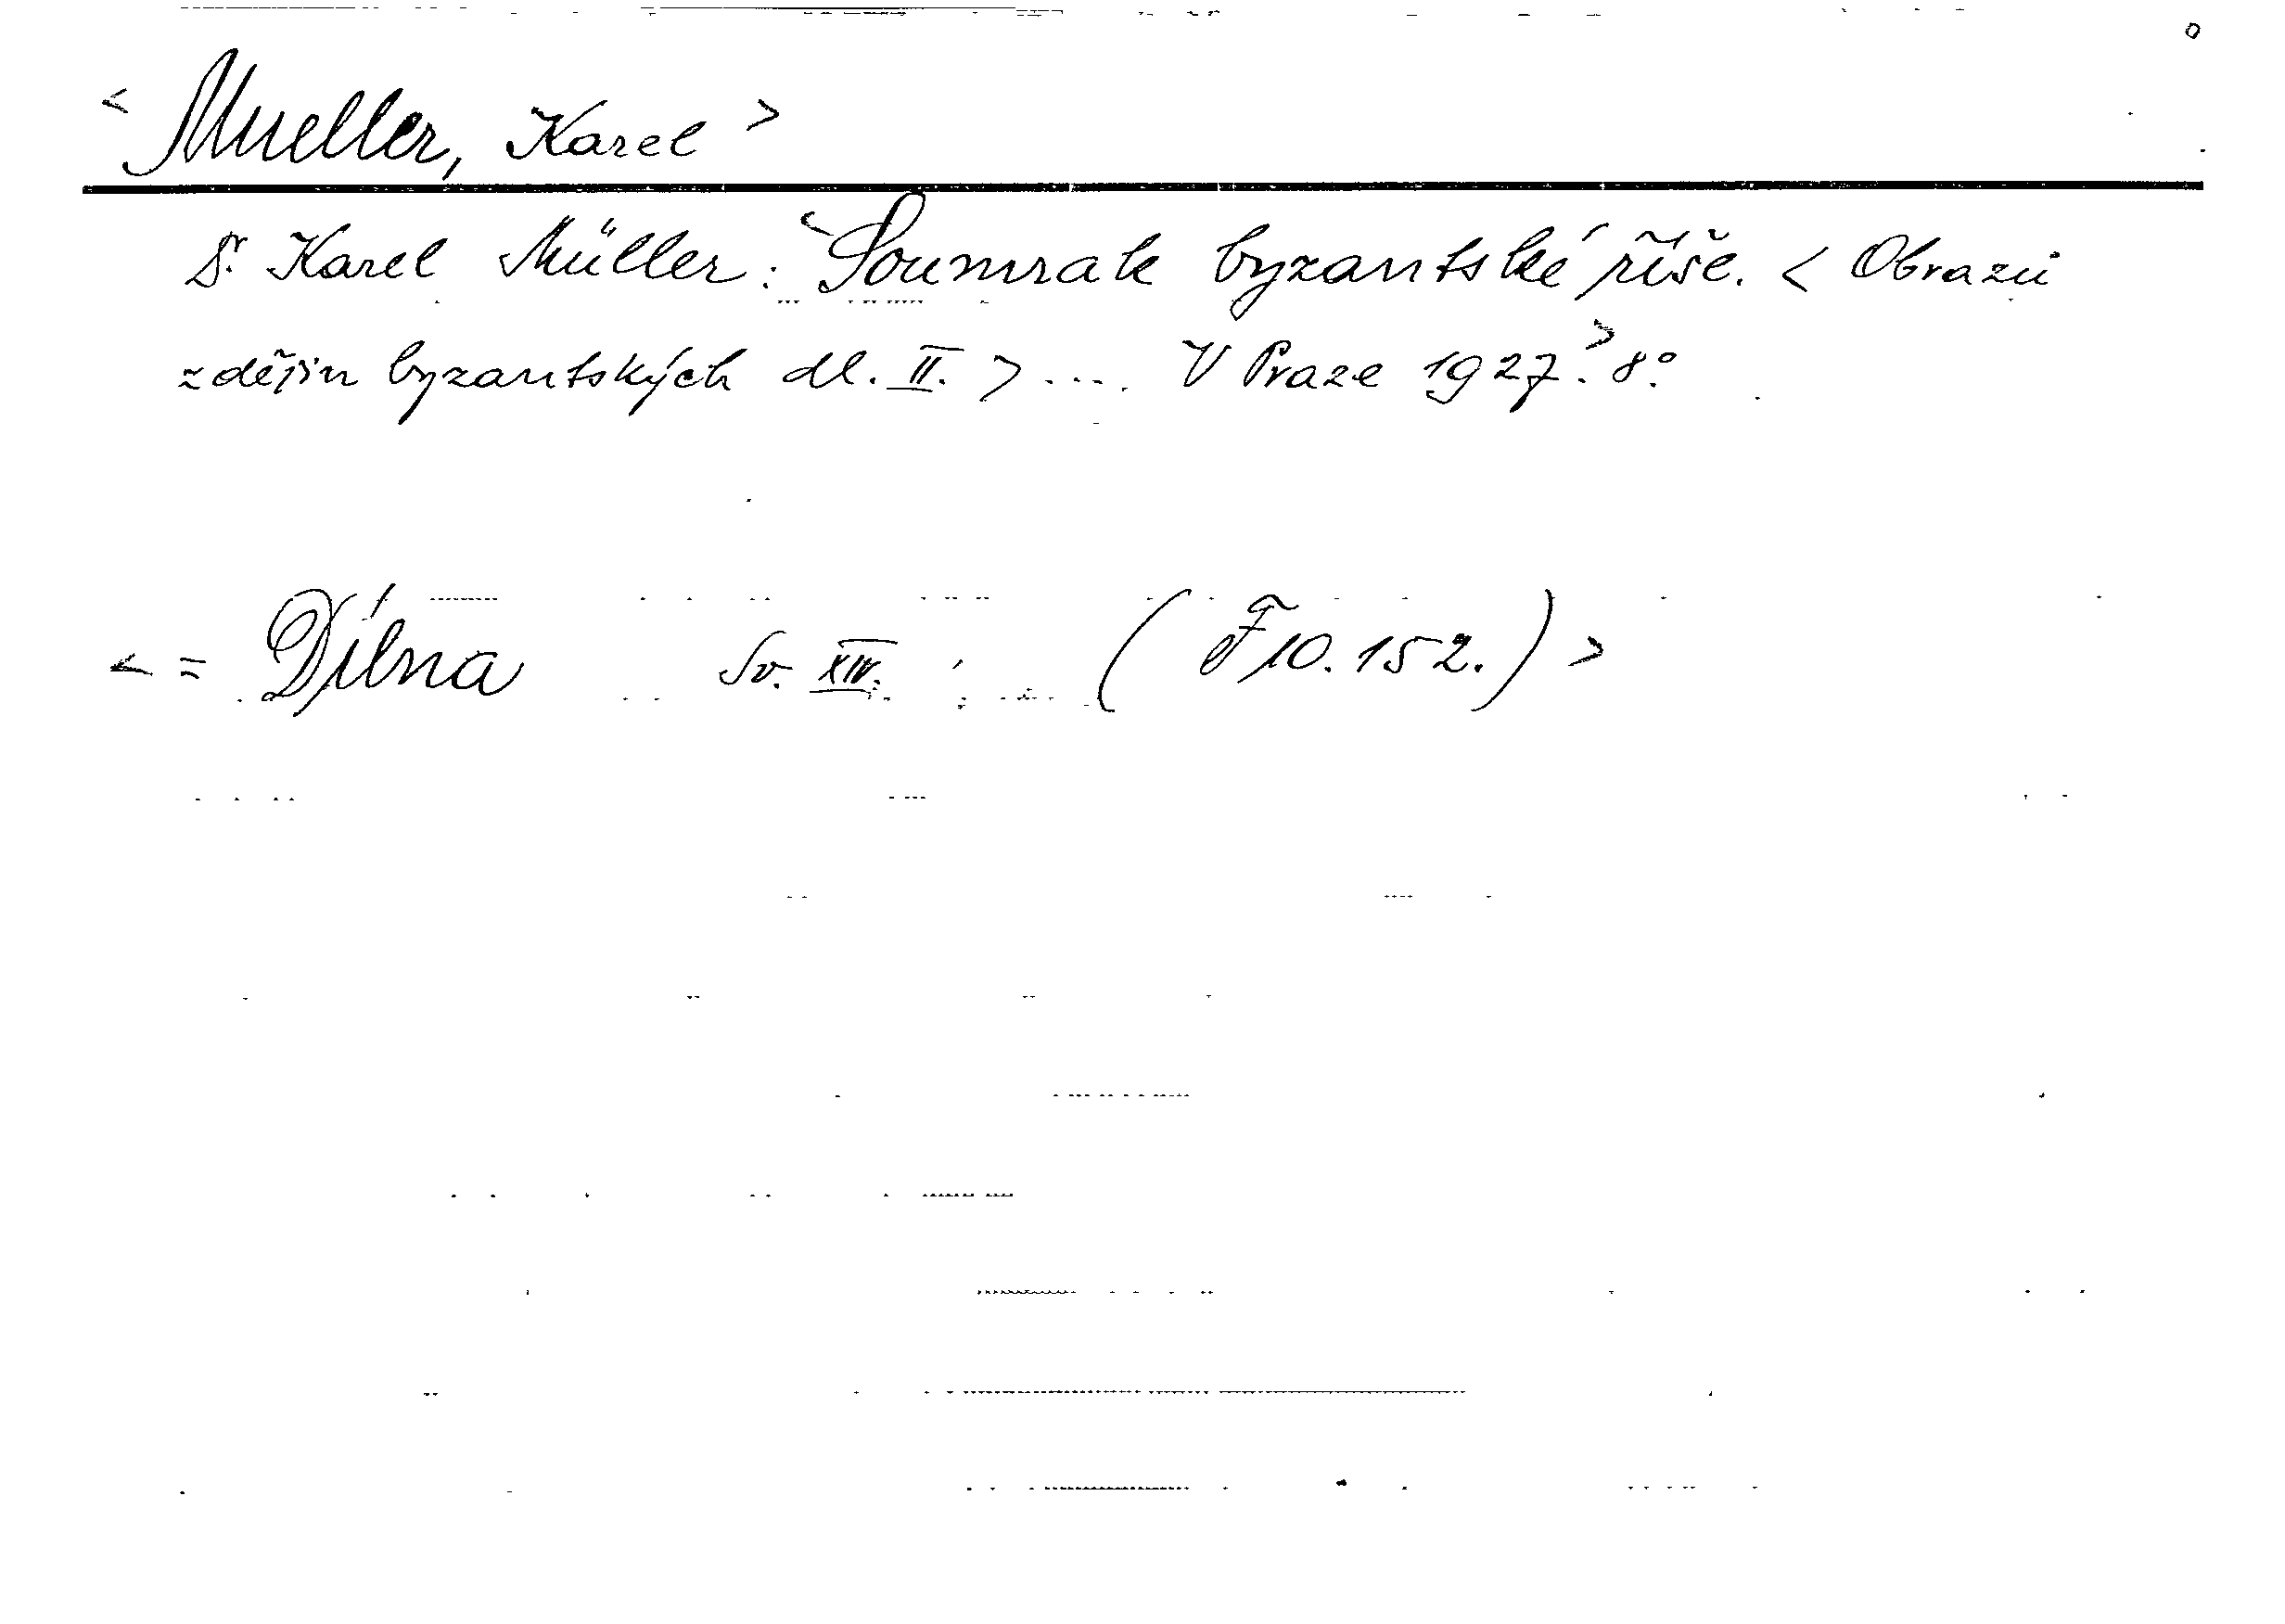 < Mueller, Karel >
Dr. Karel Müller: < Soumrak byzantské říše. < Obrazů
z dějin byzantských dl. II. > .... V Praze 1927. > 8°.
< = Dílna Sv. XIV. (F 10.152.) >